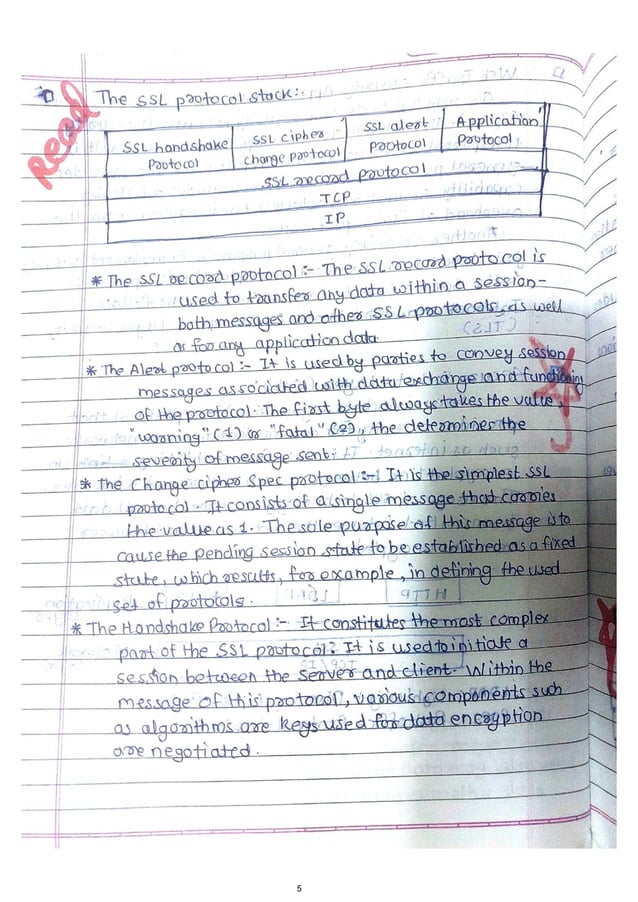 Read
The SSL protocol stack:-
SSL handshake Protocol
SSL cipher change protocol
SSL alert Protocol
Application Protocol
SSL record protocol
TCP
IP
* The SSL record protocol :- The SSL record protocol is
used to transfer any data within a session-
both messages and other SSL protocols, as well
as for any application data
* The Alert protocol :- It is used by parties to convey session
messages associated with data exchange and functioning
of the protocol. The first byte always takes the value,
"warning" (1) or "fatal" (2), the determines the
severity of message sent.
* The Change cipher Spec protocol :- It is the simplest SSL
protocol. It consists of a single message that carries
the value as 1. The sole purpose of this message is to
cause the pending session state to be established as a fixed
state, which results, for example, in defining the used
set of protocols.
* The Handshake Protocol :- It constitutes the most complex
part of the SSL protocol. It is used to initiate a
session between the server and client. Within the
message of this protocol, various components such
as algorithms are keys used for data encryption
are negotiated.
5